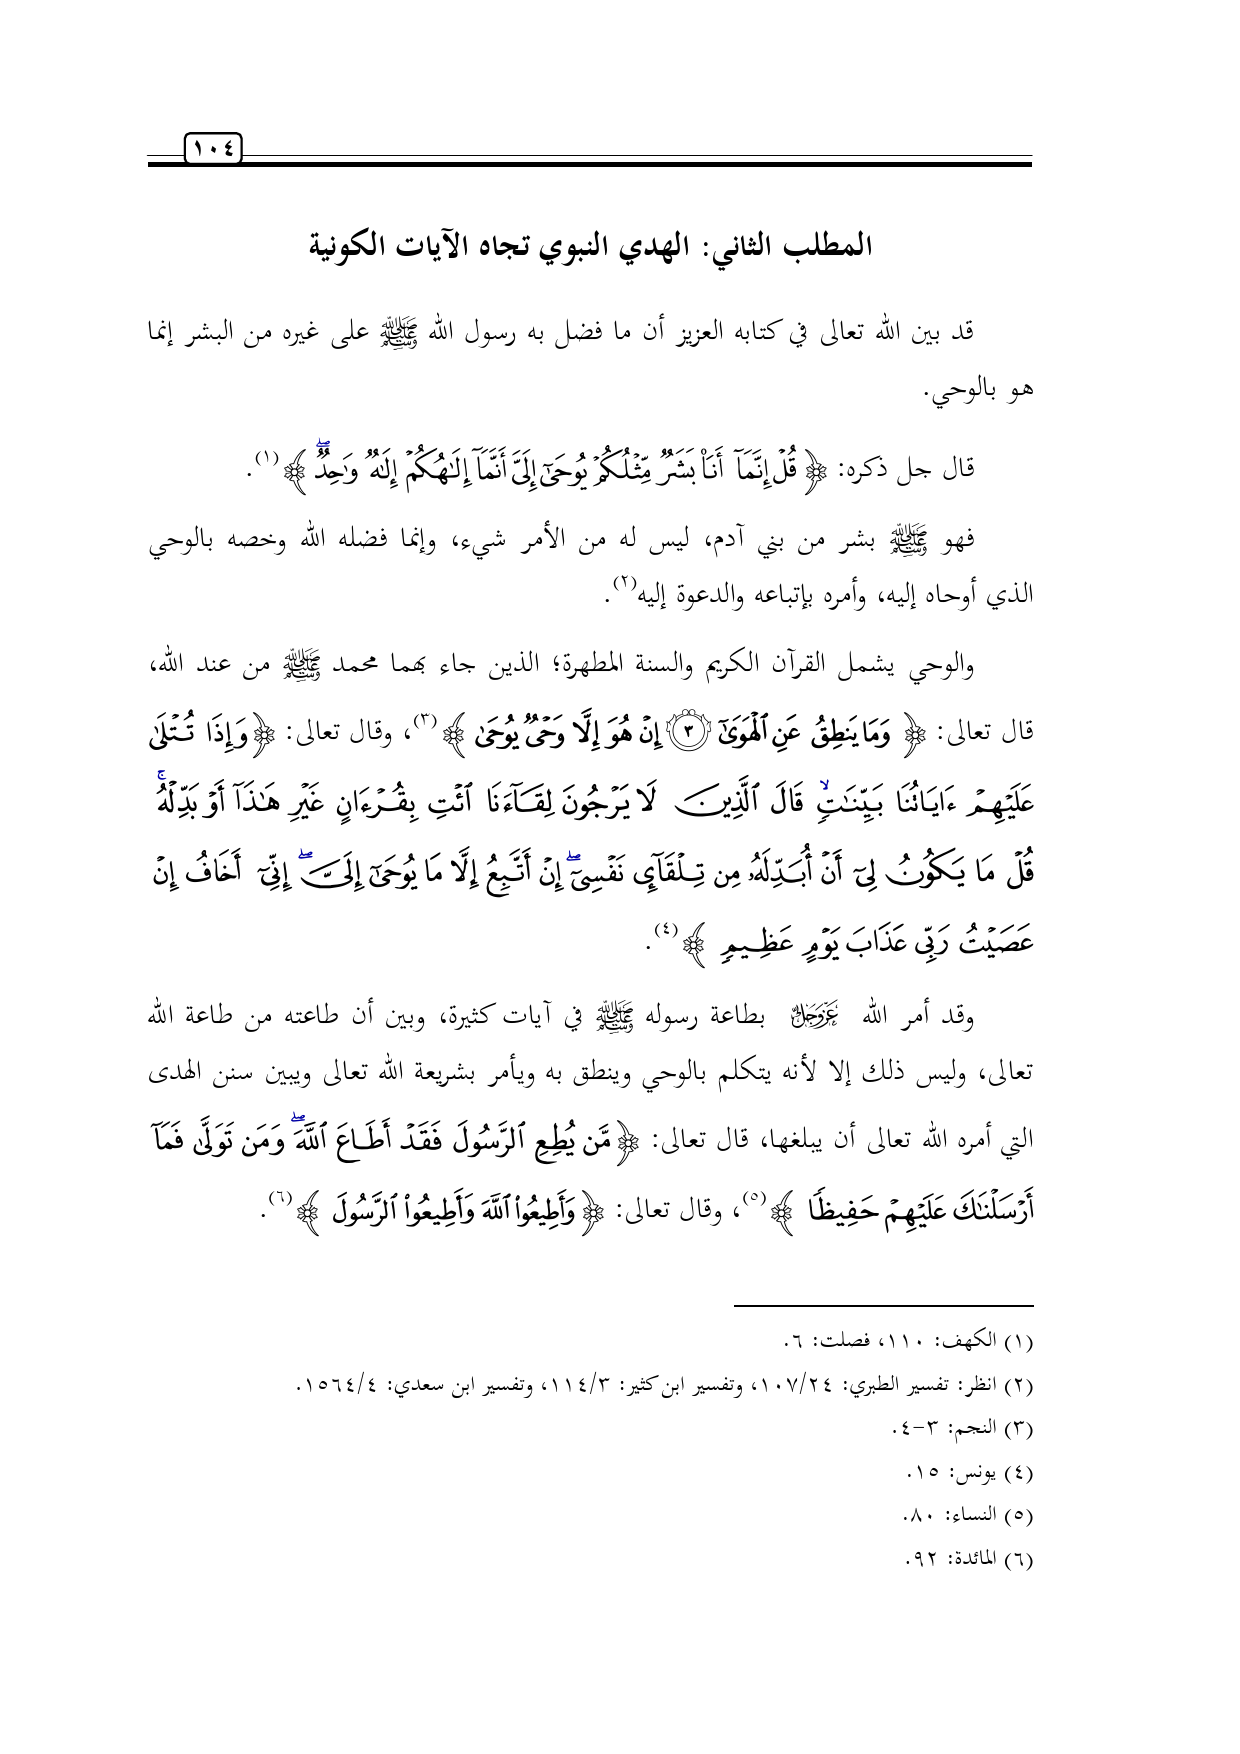 ١٠٤
المطلب الثاني: الهدي النبوي تجاه الآيات الكونية
قد بين الله تعالى في كتابه العزيز أن ما فضل به رسول الله ﷺ على غيره من البشر إنما
هو بالوحي.
قال جل ذكره: ﴿ قُلْ إِنَّمَآ أَنَا۠ بَشَرٌ مِّثْلُكُمْ يُوحَىٰٓ إِلَىَّ أَنَّمَآ إِلَٰهُكُمْ إِلَٰهٌ وَٰحِدٌ ۖ ﴾(١).
فهو ﷺ بشر من بني آدم، ليس له من الأمر شيء، وإنما فضله الله وخصه بالوحي
الذي أوحاه إليه، وأمره بإتباعه والدعوة إليه(٢).
والوحي يشمل القرآن الكريم والسنة المطهرة؛ الذين جاء بهما محمد ﷺ من عند الله،
قال تعالى: ﴿ وَمَا يَنطِقُ عَنِ ٱلْهَوَىٰٓ ٣ إِنْ هُوَ إِلَّا وَحْىٌ يُوحَىٰ ﴾(٣)، وقال تعالى: ﴿ وَإِذَا تُتْلَىٰ
عَلَيْهِمْ ءَايَاتُنَا بَيِّنَٰتٍ ۙ قَالَ ٱلَّذِينَ لَا يَرْجُونَ لِقَآءَنَا ٱئْتِ بِقُرْءَانٍ غَيْرِ هَٰذَآ أَوْ بَدِّلْهُ ۚ
قُلْ مَا يَكُونُ لِىٓ أَنْ أُبَدِّلَهُۥ مِن تِلْقَآئِ نَفْسِىٓ ۖ إِنْ أَتَّبِعُ إِلَّا مَا يُوحَىٰٓ إِلَىَّ ۖ إِنِّىٓ أَخَافُ إِنْ
عَصَيْتُ رَبِّى عَذَابَ يَوْمٍ عَظِيمٍ ﴾(٤).
وقد أمر الله عَزَّوَجَلَّ بطاعة رسوله ﷺ في آيات كثيرة، وبين أن طاعته من طاعة الله
تعالى، وليس ذلك إلا لأنه يتكلم بالوحي وينطق به ويأمر بشريعة الله تعالى ويبين سنن الهدى
التي أمره الله تعالى أن يبلغها، قال تعالى: ﴿ مَّن يُطِعِ ٱلرَّسُولَ فَقَدْ أَطَاعَ ٱللَّهَ ۖ وَمَن تَوَلَّىٰ فَمَآ
أَرْسَلْنَٰكَ عَلَيْهِمْ حَفِيظًا ﴾(٥)، وقال تعالى: ﴿ وَأَطِيعُوا۟ ٱللَّهَ وَأَطِيعُوا۟ ٱلرَّسُولَ ﴾(٦).
(١) الكهف: ١١٠، فصلت: ٦.
(٢) انظر: تفسير الطبري: ١٠٧/٢٤، وتفسير ابن كثير: ١١٤/٣، وتفسير ابن سعدي: ١٥٦٤/٤.
(٣) النجم: ٣-٤.
(٤) يونس: ١٥.
(٥) النساء: ٨٠.
(٦) المائدة: ٩٢.